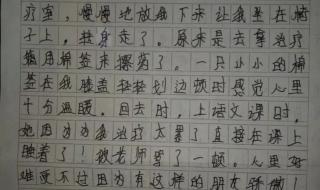 疗室，慢慢地放我下来让我坐在椅
子上，转身走了。原来是去拿治疗
信用棉签来擦药了。一只小小的棉
签在我膝盖轻轻划边顿时感觉人里
十分温暖。回去时，上语文课时，
她因为为我治疗太累了直接在课上
睡着了！被老师骂了一顿。心里好
难受不过因为有这样的朋友骄傲！